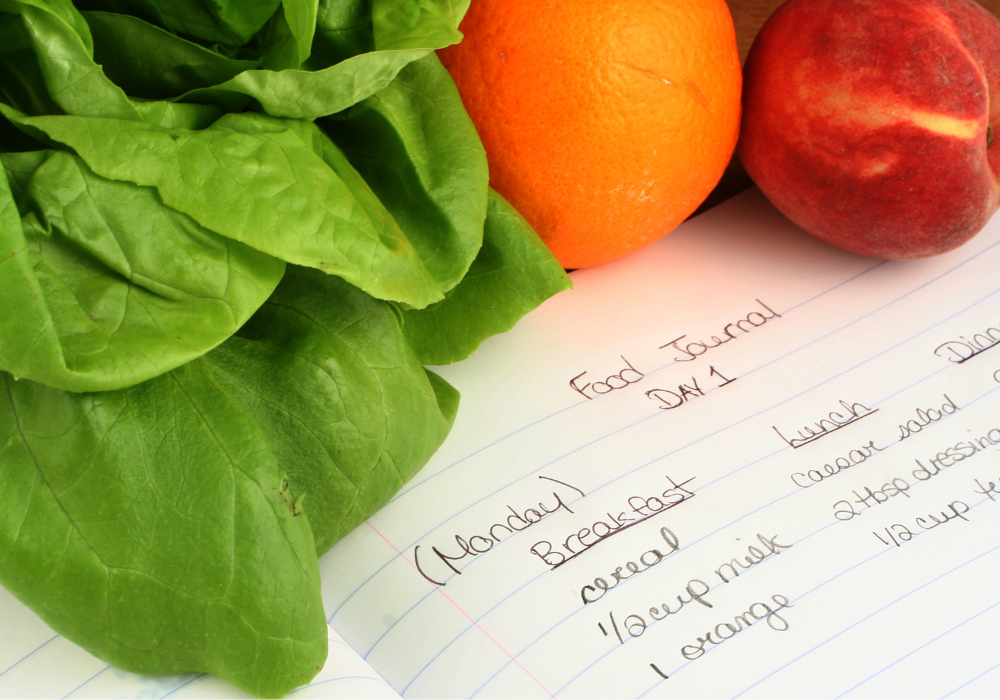 Food Journal
DAY 1
(Monday)
Breakfast
cereal
1/2 cup milk
1 orange
Lunch
caesar salad
2 tbsp dressing
1/2 cup